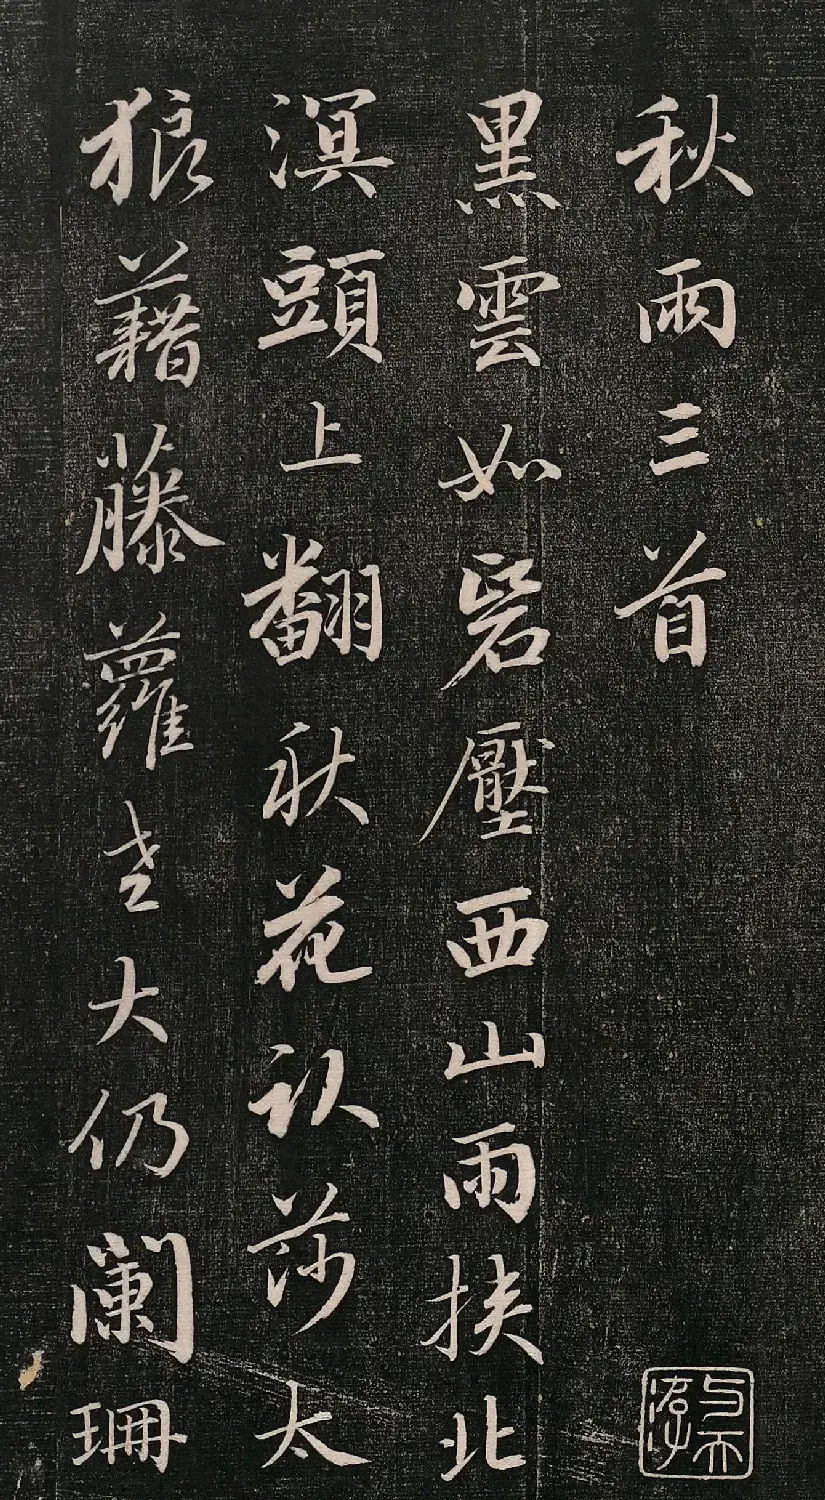 秋雨三首
黑雲如壓西山雨挟北
溟頭上翻秋花莎太
狼藉藤蘿老大仍闌珊
与天游